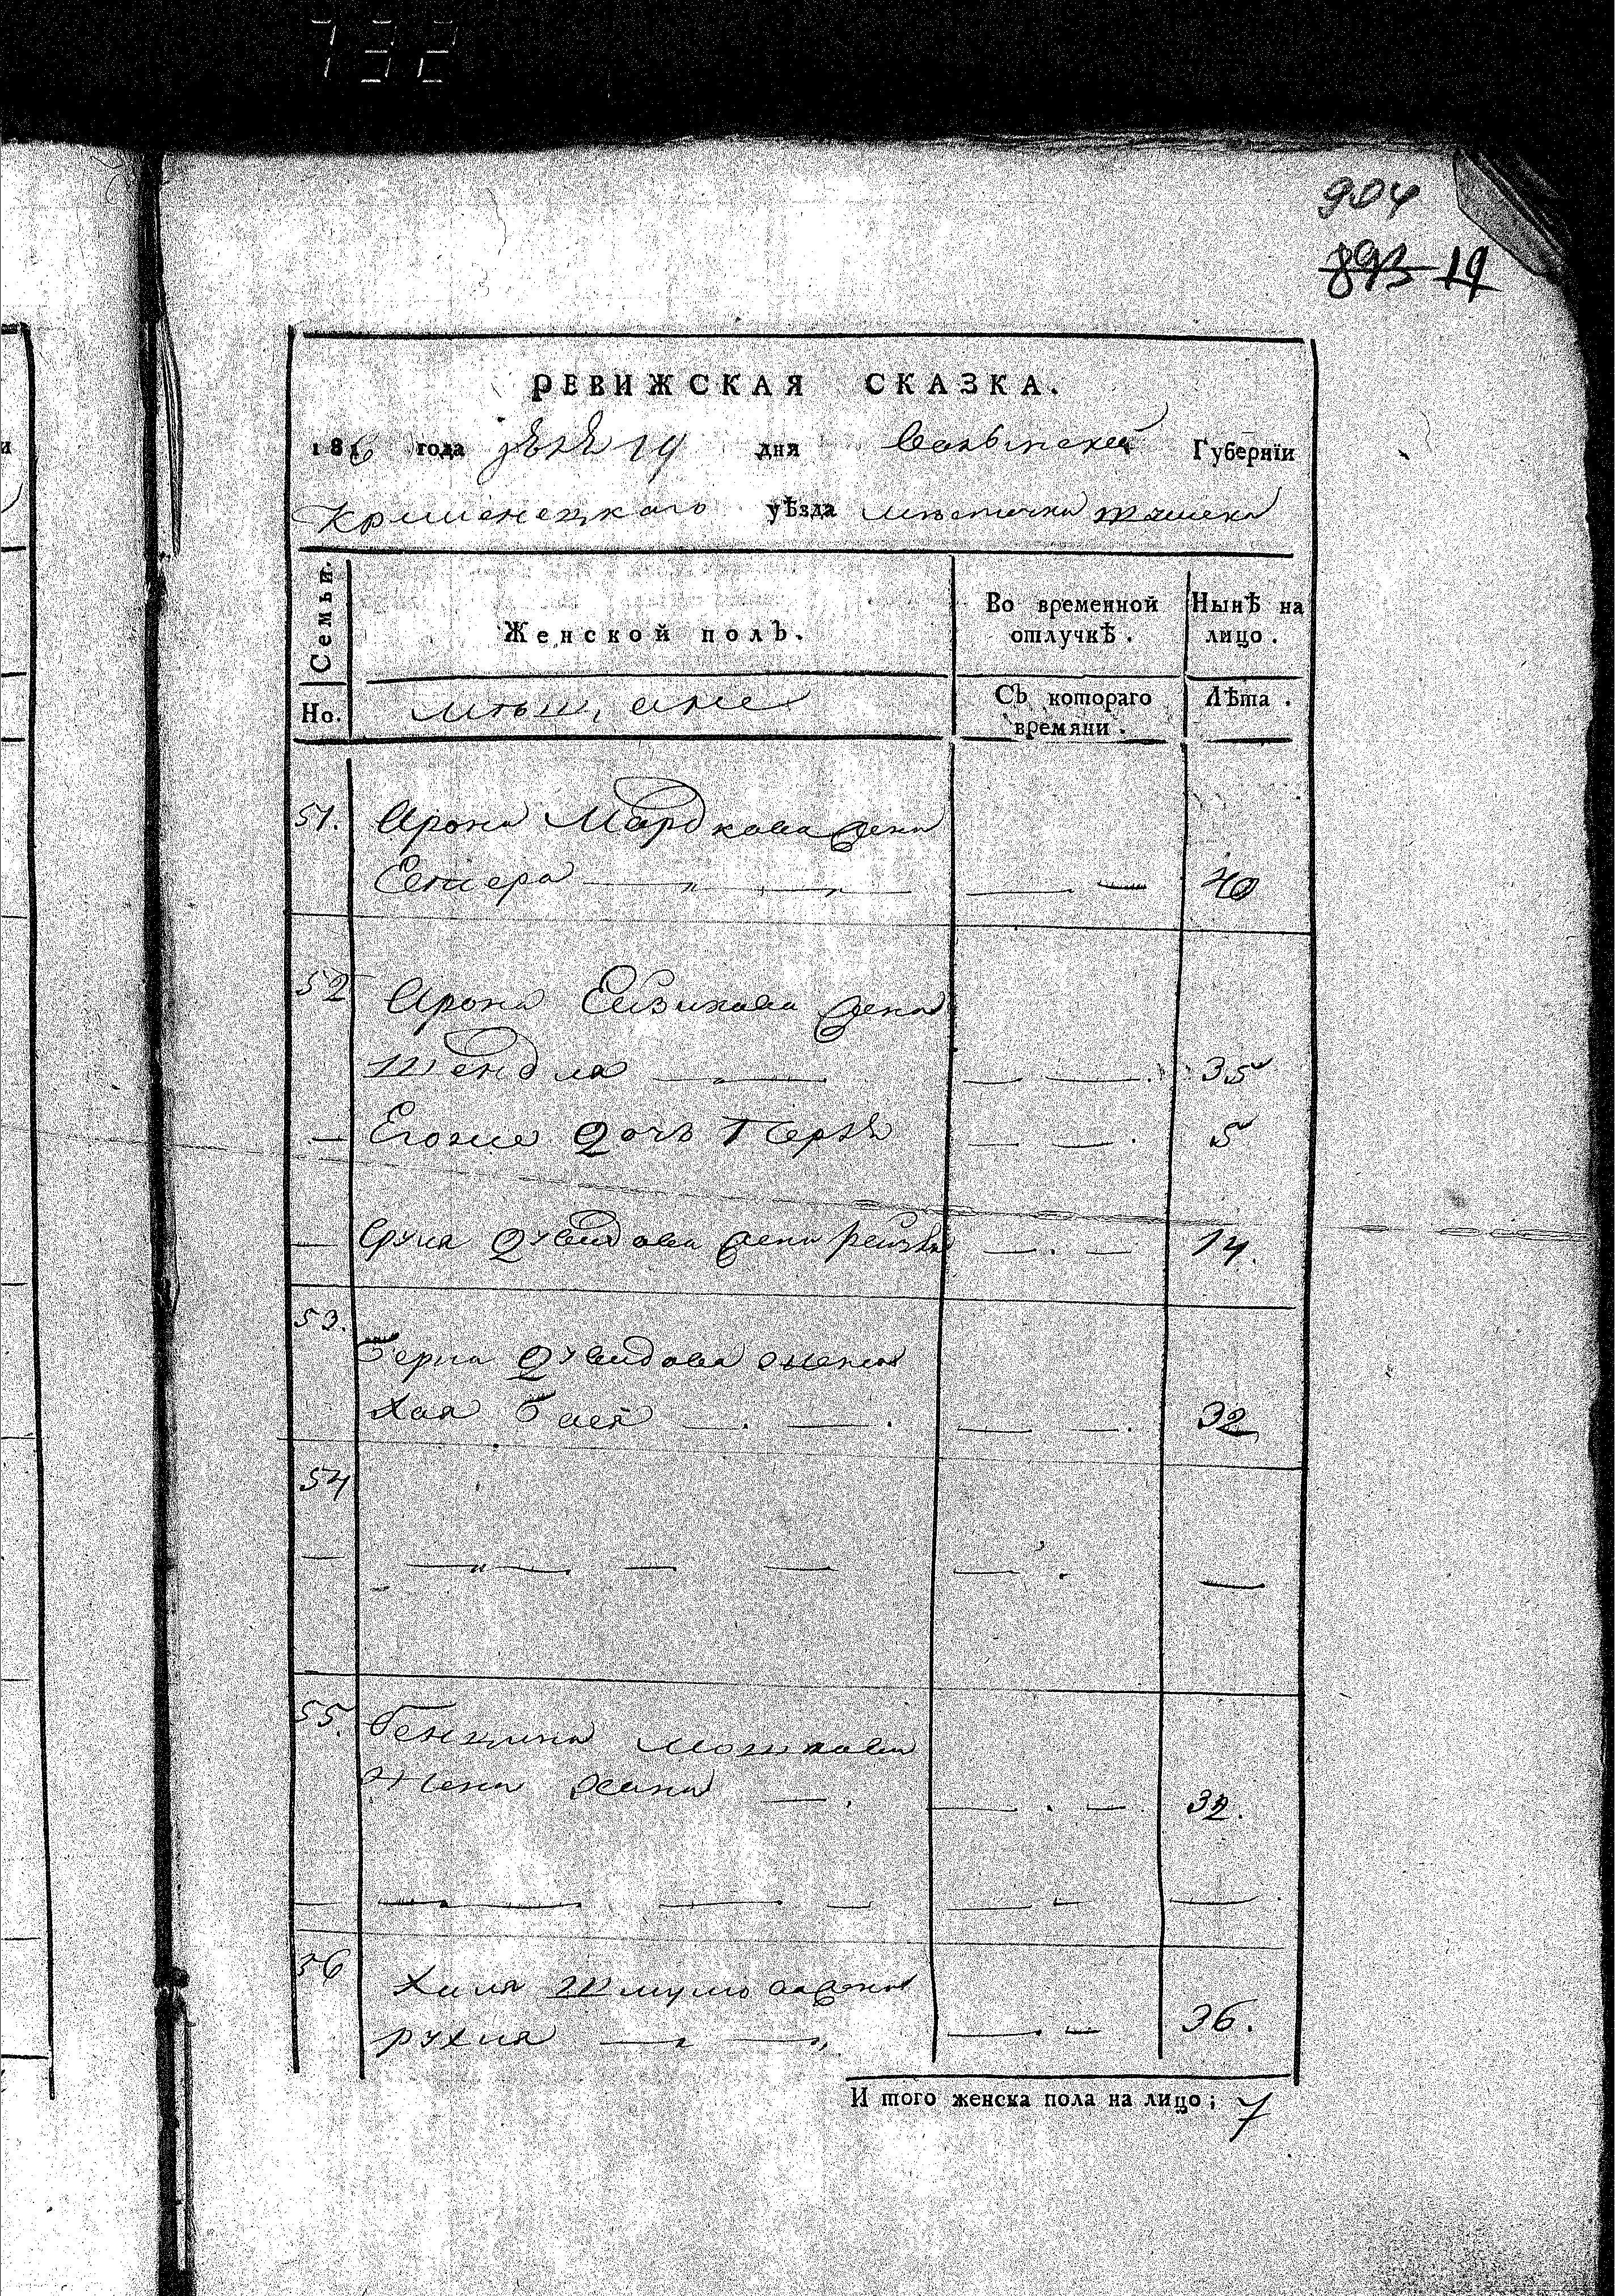 732
904
893 19
РЕВИЖСКАЯ СКАЗКА.
1816 года 19 дня Волынской Губернїи
Кременецкаго уѣзда местечка
Семьи.
Женской полъ.
Во временной отлучкѣ.
Нынѣ на лицо.
Но.
мѣщане
Съ котораго времяни.
Лѣта.
51. Арона Мардкова жена
Естера 40
52 Арона Ейзикова жена
Шендля 35
Егоже дочь Перля 5
Сруля Дувидова жена Рейзя 14.
53. Берка Дувидова жена
Хая Бася 32
54
55. Бенцина Мошкова
Жена Хана 32.
56 Хиля Шмулева жена
Рухля 36.
И того женска пола на лицо; 7